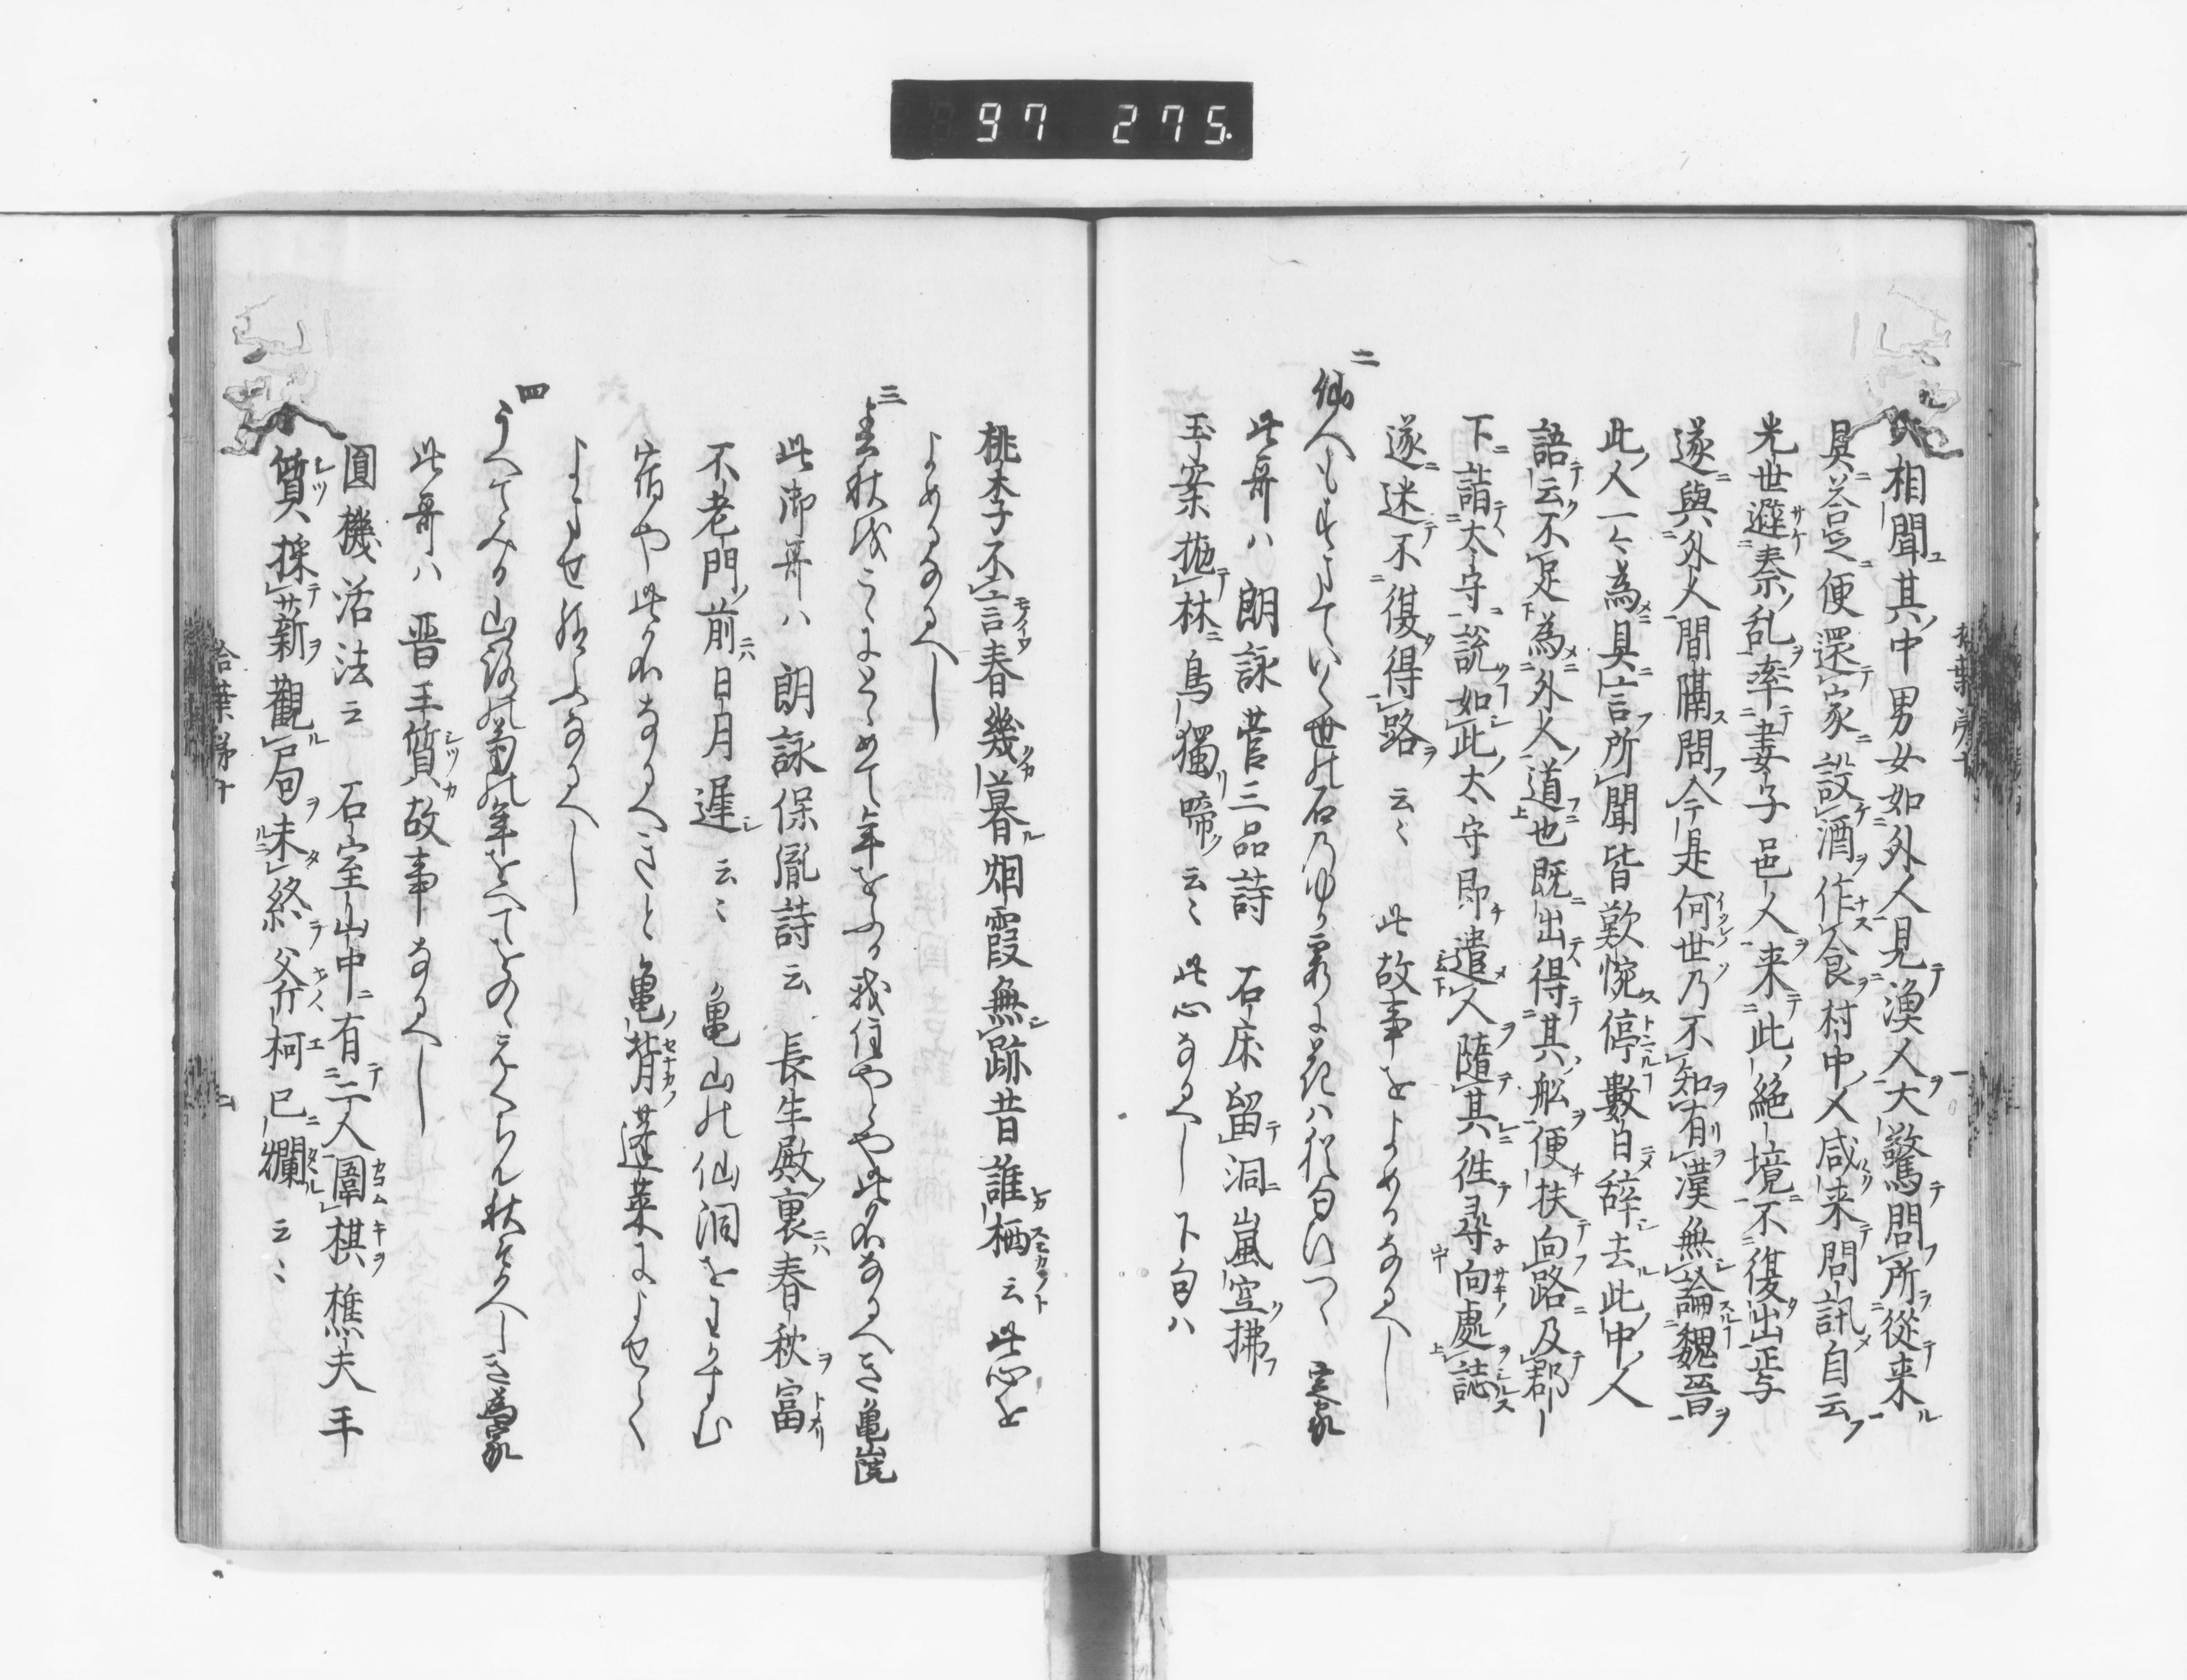 97 275.
吠相聞其中男女如外人見漁人大驚問所從来
具荅之便還家設酒作食村中人咸来問訊自云
光世避秦乱率妻子邑人来此絶境不復出与
遂與外人間隔問今是何世乃不知有漢無論魏晋
此人一々為具言所聞皆歎惋停數日辞去此中人
語云不足為外人道也既出得其舩便扶向路及郡
下詣太守説如此太守即遣人隨其徃尋向處誌
遂迷不復得路 云〻 此故事をよめるなるへし
二
仙人も
世の石のゆか霜に花は猶匂ひつゝ 定家
此哥ハ朗詠菅三品詩 石床留洞嵐空拂
玉案抛林鳥獨啼 云〻 此心なるへし 下句ハ
桃李不言春幾暮烟霞無跡昔誰栖 云 此心を
よめるなるへし
三
春秋はこゝにとゝめて年をふる我住やとや此名なるへき 亀山院
此御哥ハ朗詠保胤詩云 長生殿裏春秋富
不老門前日月遅 云〻 亀山の仙洞を
宿や此名なるへきと亀背蓬莱によせて
よませ給ふなるへし
四
うへてみる山路の菊の年をへて
秋そ久しき 為家
此哥ハ晋王質故事なるへし
圓機活法云 石室山中有二人圍棋樵夫王
質採薪觀局未終斧柯已爛 云〻
拾葉第十